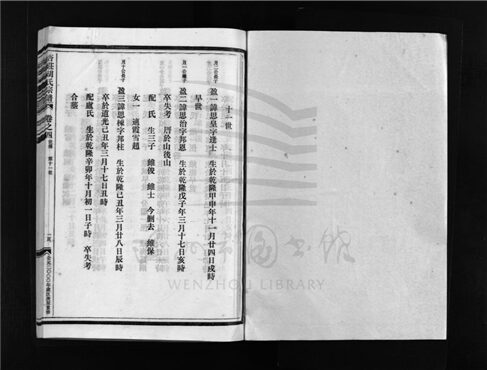 十一世
盈一諱思皇字逢士 生於乾隆甲申年十一月廿四日戌時
早世
盈二諱思治字邦恩 生於乾隆戊子年三月十七日亥時
卒失考 厝於山後山
配 氏 生三子 維俊 維士 今剛去 維保
女一 適霞雪趙
盈三諱思棟字邦柱 生於乾隆己丑年三月廿八日辰時
卒於道光己丑年三月十七日丑時
配盧氏 生於乾隆辛卯年十月初一日子時 卒失考
合墓
胡氏宗譜
卷之四
WENZHOU LIBRARY